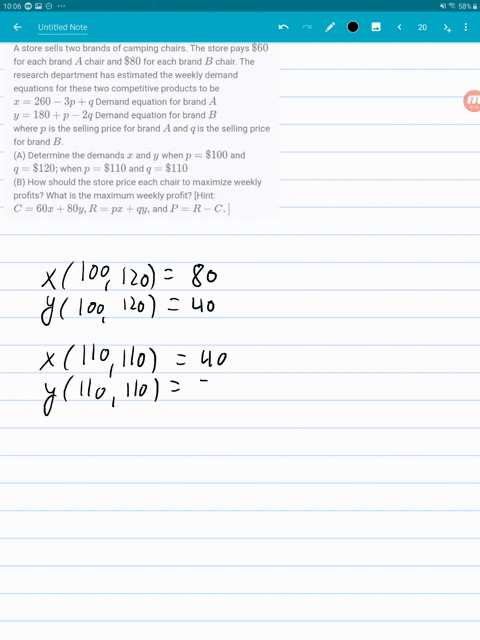 10:06
58%
Untitled Note
20
A store sells two brands of camping chairs. The store pays $60
for each brand A chair and $80 for each brand B chair. The
research department has estimated the weekly demand
equations for these two competitive products to be
x = 260 − 3p + q Demand equation for brand A
y = 180 + p − 2q Demand equation for brand B
where p is the selling price for brand A and q is the selling price
for brand B.
(A) Determine the demands x and y when p = $100 and
q = $120; when p = $110 and q = $110
(B) How should the store price each chair to maximize weekly
profits? What is the maximum weekly profit? [Hint:
C = 60x + 80y, R = px + qy, and P = R − C.]
x(100, 120) = 80
y(100, 120) = 40
x(110, 110) = 40
y(110, 110) =